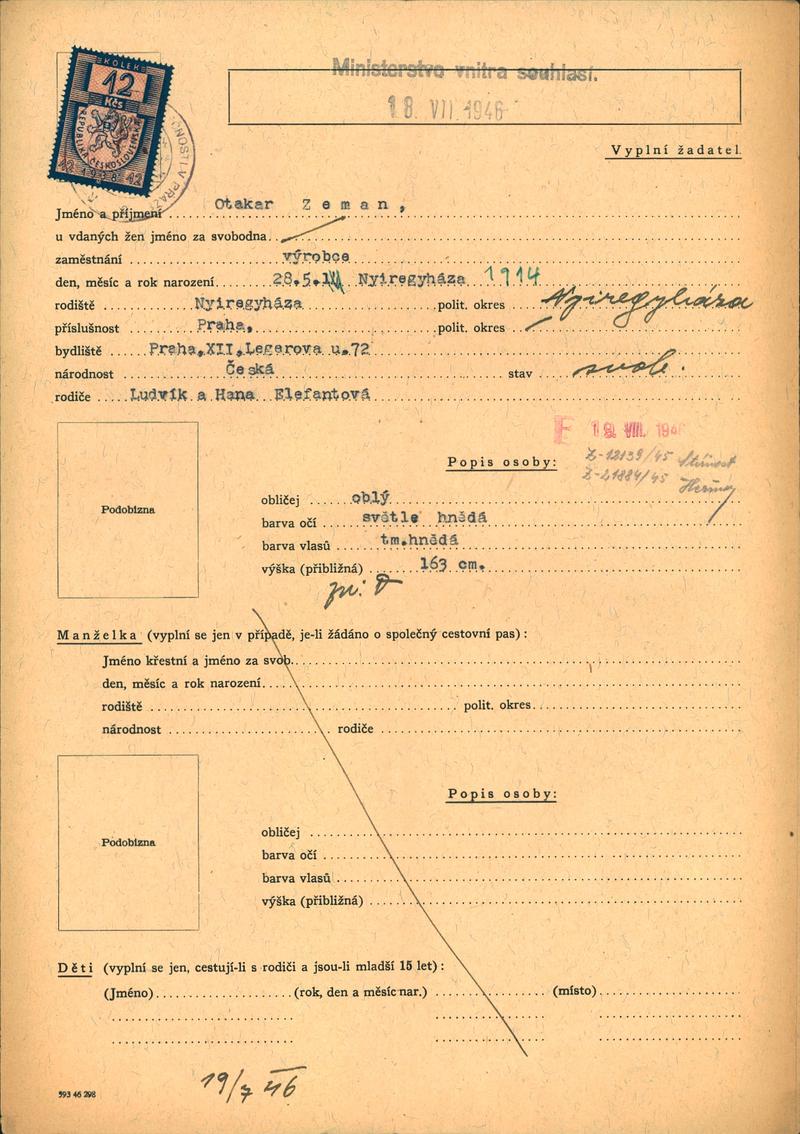 KOLEK
12
Kčs
REPUBLIKA ČESKOSLOVENSKÁ
12 1938 12
Ministerstvo vnitra souhlasí.
18. VII. 1946
Vyplní žadatel.
Jméno a příjmení Otakar Zeman,
u vdaných žen jméno za svobodna
zaměstnání výrobce
den, měsíc a rok narození 28.5. Nyiregyháza 1914
rodiště Nyiregyháza polit. okres Nyiregyháza
příslušnost Praha, polit. okres
bydliště Praha,XII,Legerova u.72
národnost Česká stav svob.
rodiče Ludvík a Hana Elefantová
F 19. VIII. 194
Popis osoby:
Z-12139/45
Z-21884/45
Podobizna
obličej oblý
barva očí světle hnědá
barva vlasů tm.hnědá
výška (přibližná) 163 cm.
Manželka (vyplní se jen v případě, je-li žádáno o společný cestovní pas):
Jméno křestní a jméno za svob.
den, měsíc a rok narození
rodiště polit. okres
národnost rodiče
Popis osoby:
Podobizna
obličej
barva očí
barva vlasů
výška (přibližná)
Děti (vyplní se jen, cestují-li s rodiči a jsou-li mladší 15 let):
(Jméno) (rok, den a měsíc nar.) (místo)
19/7 46
593 46 298